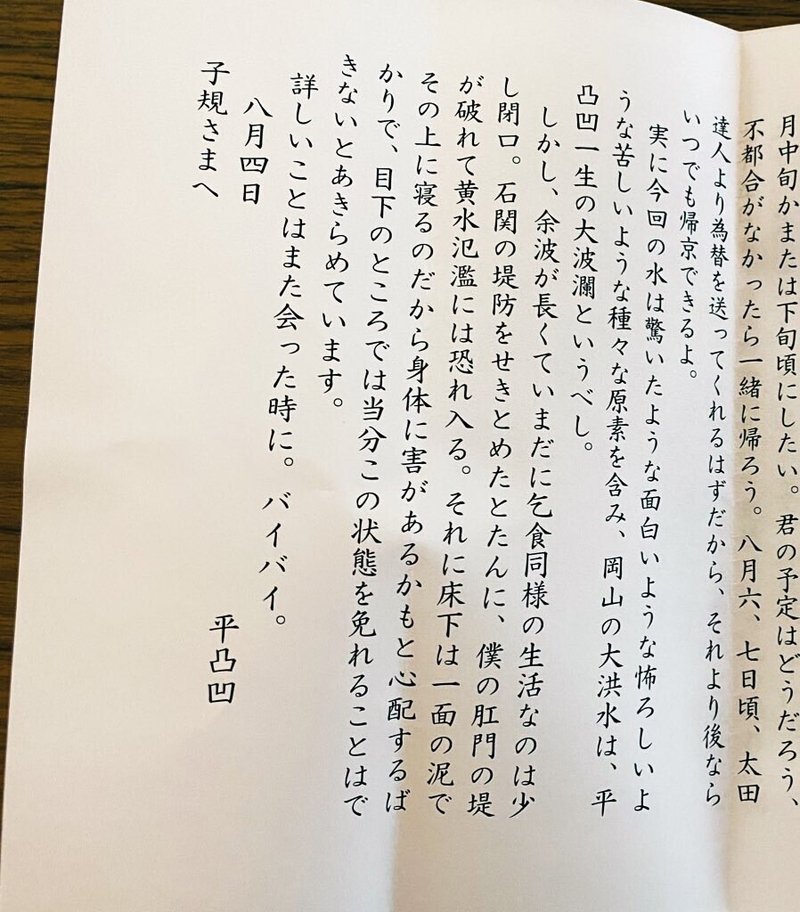 月中旬かまたは下旬頃にしたい。君の予定はどうだろう、
不都合がなかったら一緒に帰ろう。八月六、七日頃、太田
達人より為替を送ってくれるはずだから、それより後なら
いつでも帰京できるよ。
実に今回の水は驚いたような面白いような怖ろしいよ
うな苦しいような種々な原素を含み、岡山の大洪水は、平
凸凹一生の大波瀾というべし。
しかし、余波が長くていまだに乞食同様の生活なのは少
し閉口。石関の堤防をせきとめたとたんに、僕の肛門の堤
が破れて黄水氾濫には恐れ入る。それに床下は一面の泥で
その上に寝るのだから身体に害があるかもと心配するば
かりで、目下のところでは当分この状態を免れることはで
きないとあきらめています。
詳しいことはまた会った時に。バイバイ。
八月四日
平凸凹
子規さまへ